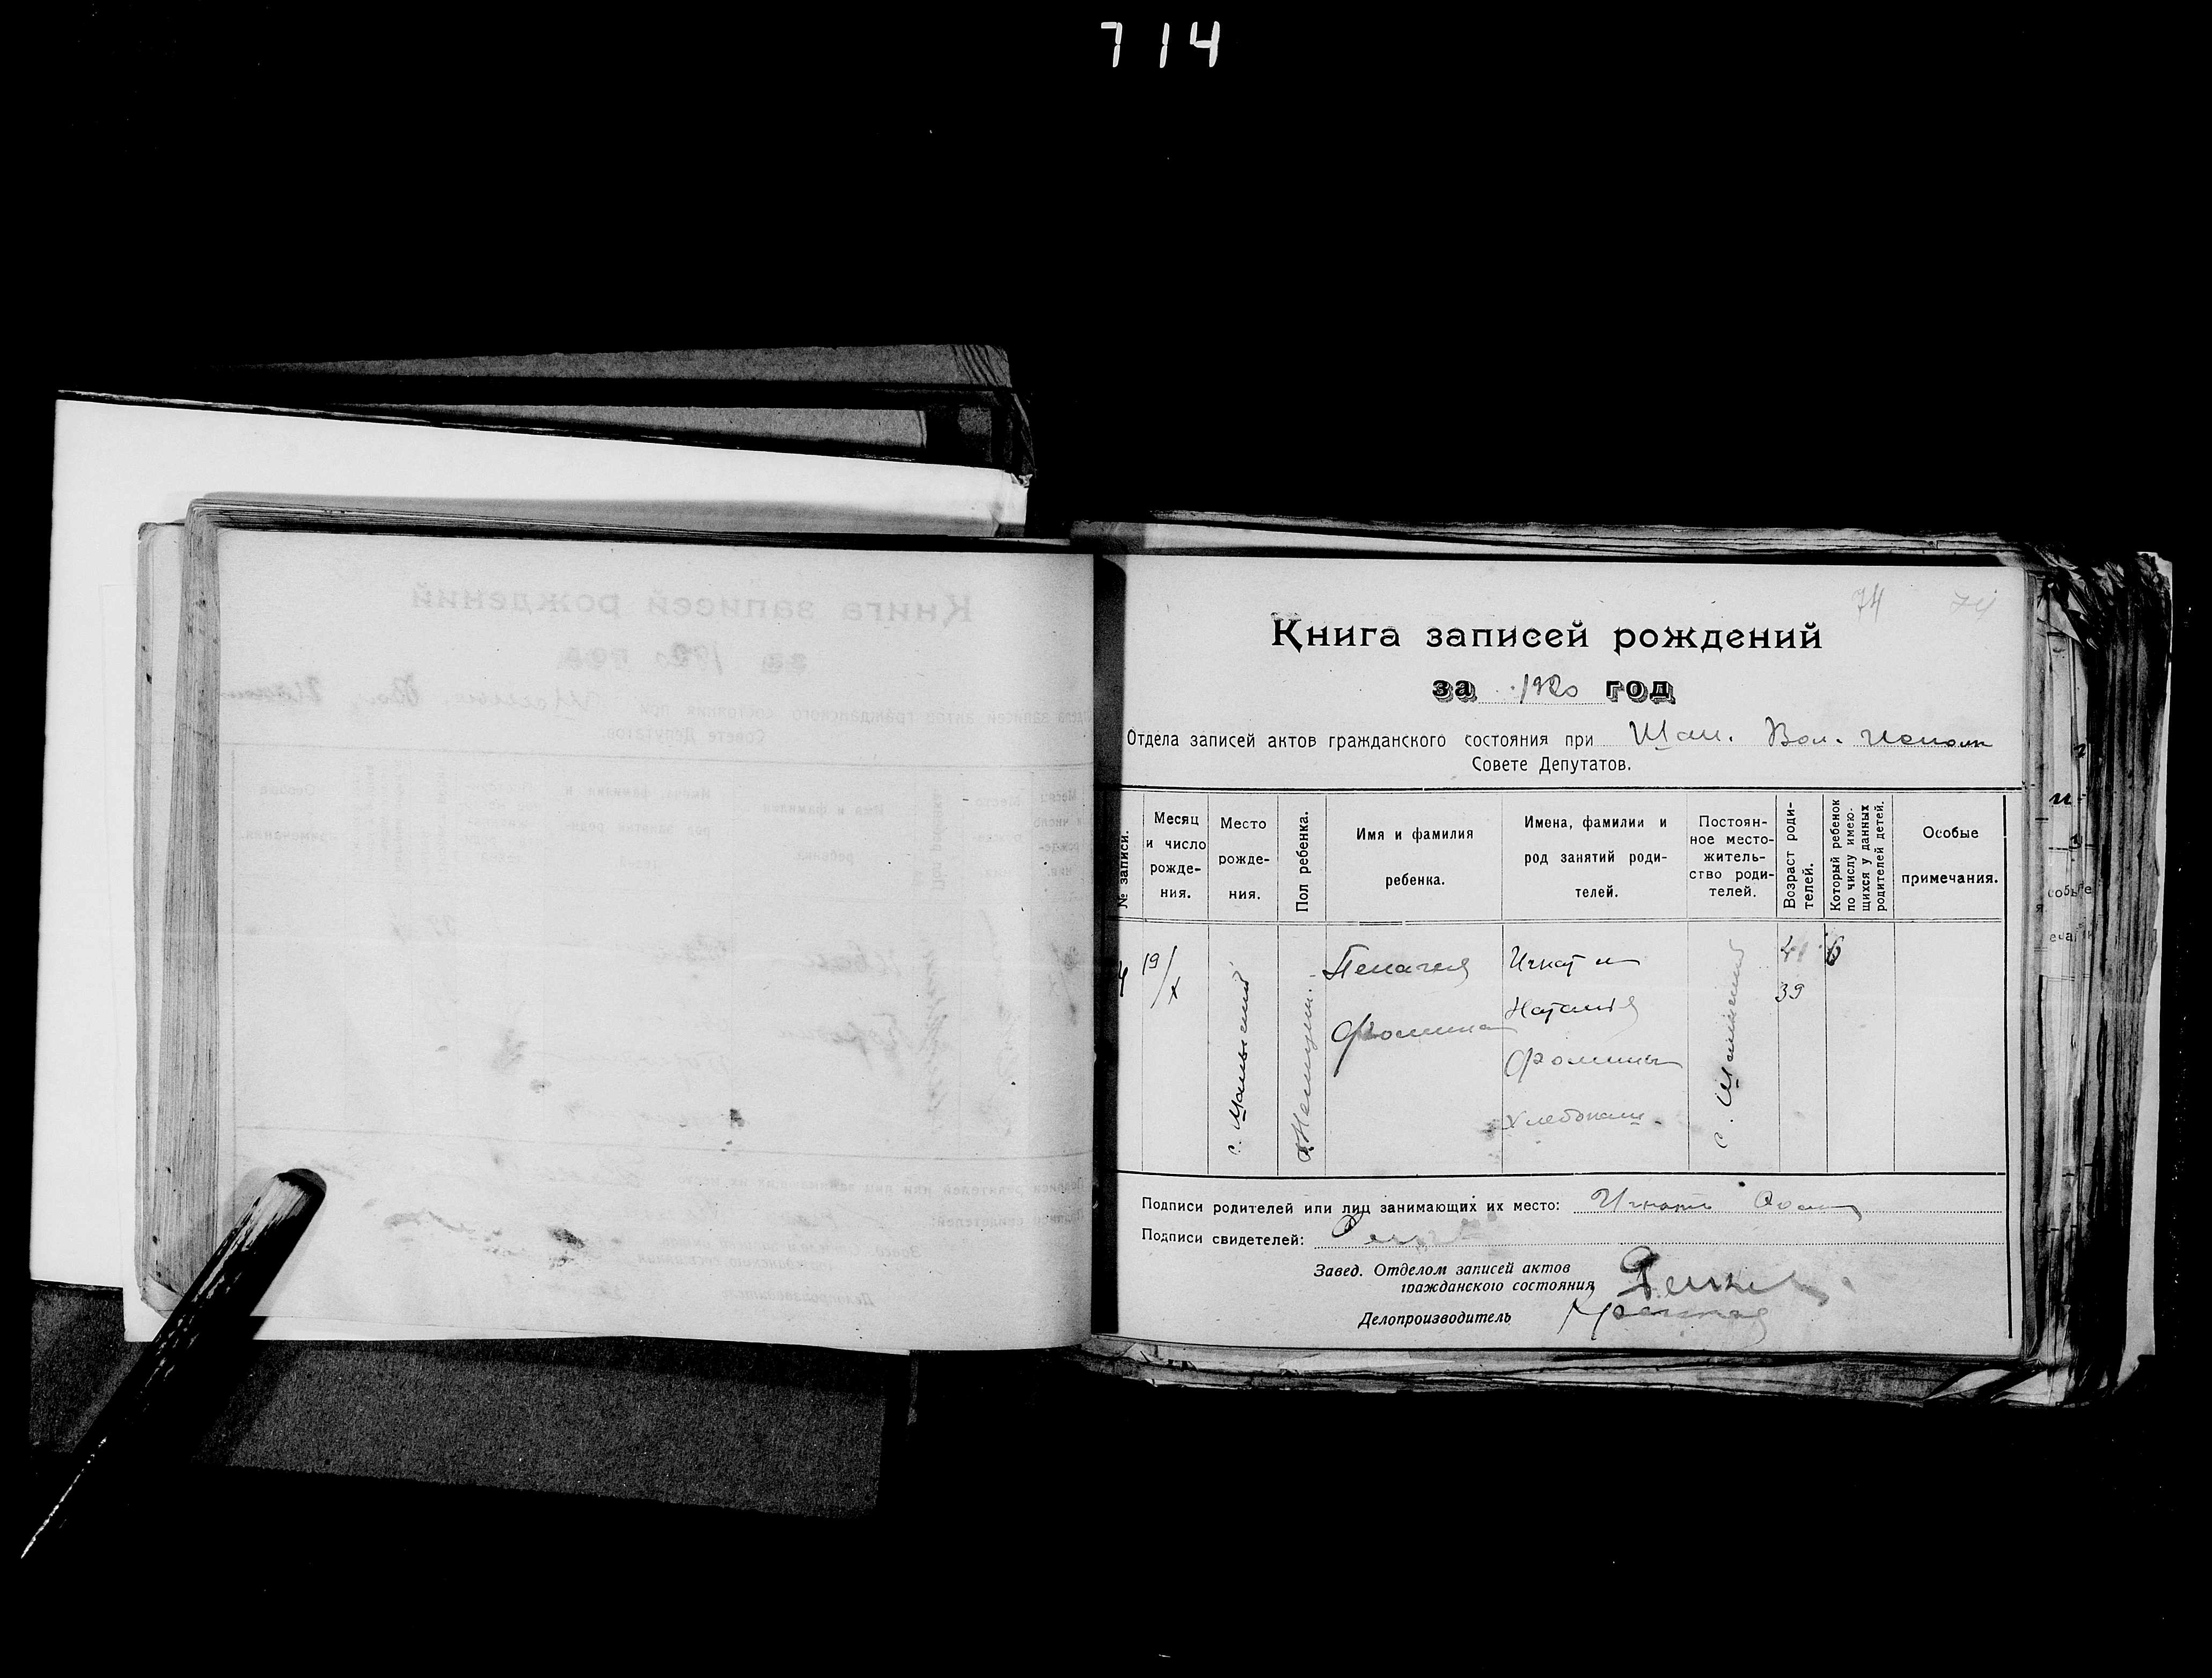 714
74 74
Книга записей рождений
за 1920 год
Отдела записей актов гражданского состояния при Шам. Вол. Исполк
Совете Депутатов.
№ записи.
Месяц и число рожде-
ния.
Место
рожде-
ния.
Пол ребенка.
Имя и фамилия
ребенка.
Имена, фамилии и
род занятий роди-
телей.
Постоян-
ное место-
житель-
ство роди-
телей.
Возраст роди-
телей.
Который ребенок
по числу имею-
щихся у данных
родителей детей.
Особые
примечания.
4
19/X
с.
Женщин.
Пелагея
Фомина
Игнат и
Наталия
Фомины
Хлебопаш.
с.
41
39
6
Подписи родителей или лиц занимающих их место: Игнатъ
Подписи свидетелей:
Завед. Отделом записей актов
гражданского состояния
Делопроизводитель